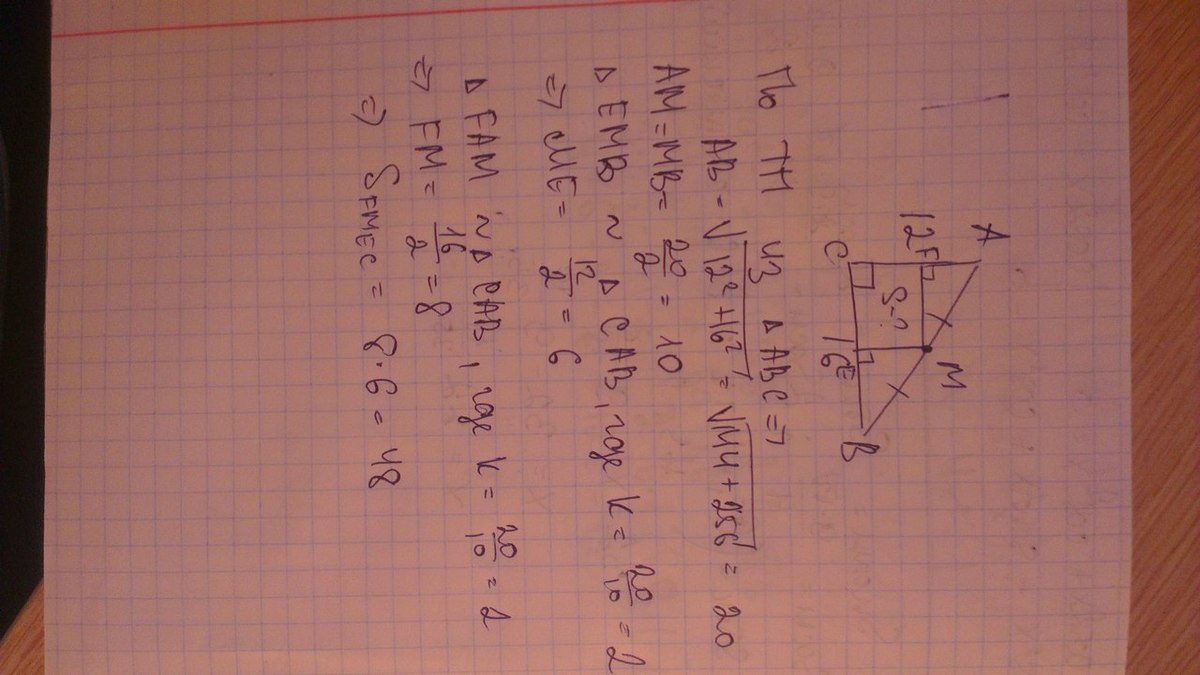 A
12 F
M
S-?
C
16 E
B
По ТП из △ ABC ⇒
AB = √12² + 16² = √144 + 256 = 20
AM = MB = 20/2 = 10
△ EMB ~ △ CAB, где k = 20/10 = 2
⇒ ME = 12/2 = 6
△ FAM ~ △ CAB, где k = 20/10 = 2
⇒ FM = 16/2 = 8
⇒ S FMEC = 8·6 = 48